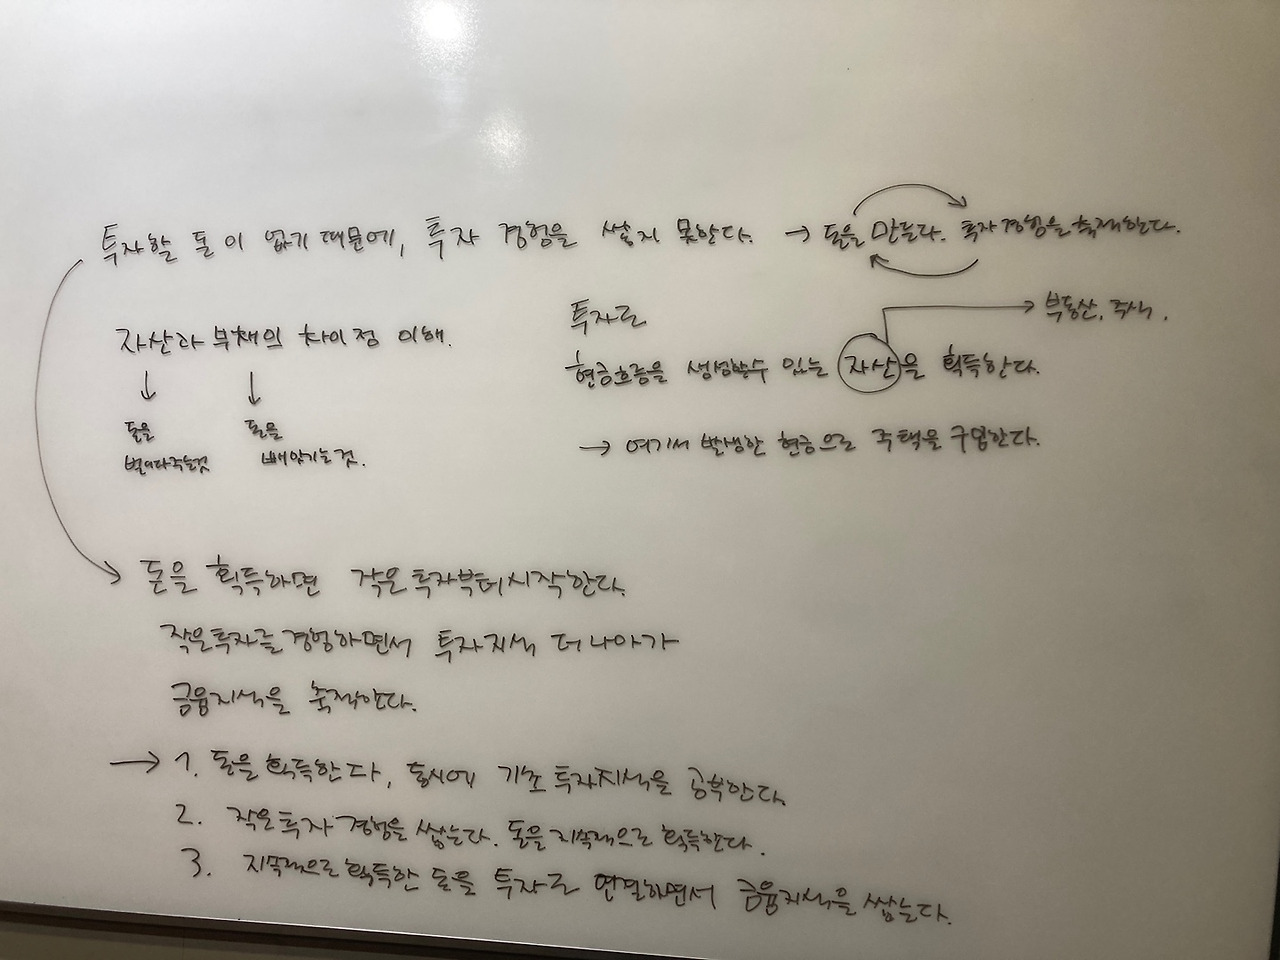 투자할 돈이 없기 때문에, 투자 경험을 쌓지 못한다. → 돈을 만든다. 투자경험을 축적한다.
자산과 부채의 차이점 이해.
↓ ↓
돈을 돈을
벌어다주는것 빼앗기는 것.
투자로
→ 부동산, 주식.
현금흐름을 생성할수 있는 자산을 획득한다.
→ 여기서 발생한 현금으로 주택을 구입한다.
→ 돈을 획득하면 작은 투자부터 시작한다.
작은 투자를 경험하면서 투자지식 더 나아가
금융지식을 축적한다.
→ 1. 돈을 획득한다, 동시에 기초 투자지식을 공부한다.
2. 작은 투자 경험을 쌓는다. 돈을 지속적으로 획득한다.
3. 지속적으로 획득한 돈을 투자로 연결하면서 금융지식을 쌓는다.